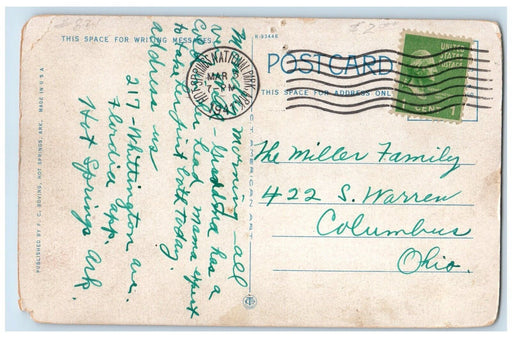 R-93446
THIS SPACE FOR WRITING MESSAGES
POSTCARD
THIS SPACE FOR ADDRESS ONLY
HOT SPRINGS NATIONAL PARK, ARK.
MAR
PM
1941
UNITED
STATES
POSTAGE
1 CENT 1
Monday morning - all
well - Grandma has a
cold in her head, Mama expect
to take first bath today.
address us
217 - Whittington av.
Florida app.
Hot Springs Ark.
The Miller Family
422 S. Warren
Columbus
Ohio.
PUBLISHED BY F. C. BOVING, HOT SPRINGS, ARK. MADE IN U.S.A